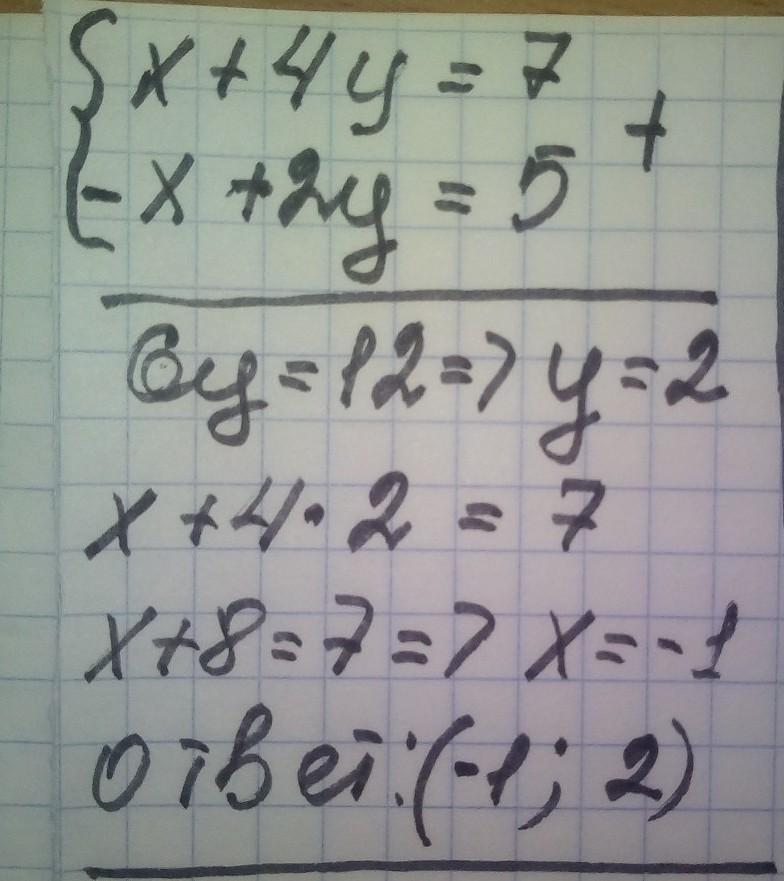 { x + 4y = 7
- x + 2y = 5 +
6y = 12 => y = 2
x + 4 · 2 = 7
x + 8 = 7 => x = -1
ответ: (-1; 2)